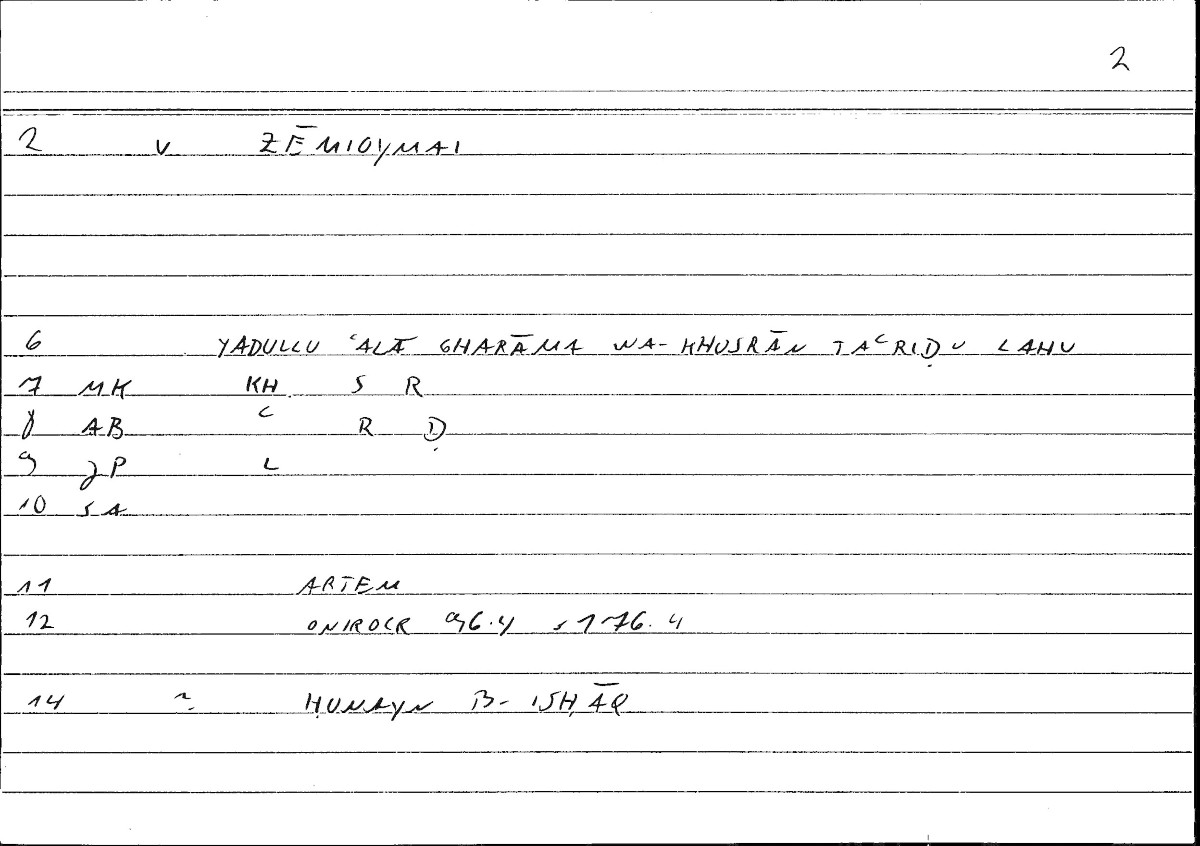 2
2 V ZĒMIOYMAI
6 YADULLU ʿALĀ GHARĀMA WA-KHUSRĀN TAʿRIḌU LAHU
7 MK KH S R
8 AB ʿ R Ḍ
9 JP L
10 SA
11 ARTEM
12 ONIROCR 96.4 s 176.4
14 ~. ḤUNAYN B- ISḤĀQ